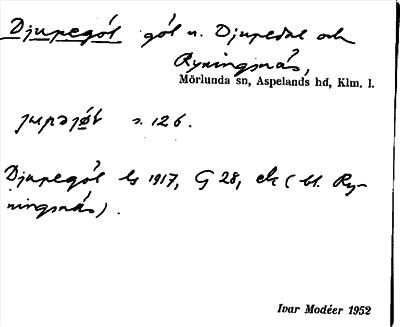 Djupegöl göl n. Djupedal och
Ryningsnäs,
Mörlunda sn, Aspelands hd, Klm. l.
s. 126.
Djupegöl 1917, G 28, ek (bl. Ry-
ningsnäs).
Ivar Modéer 1952